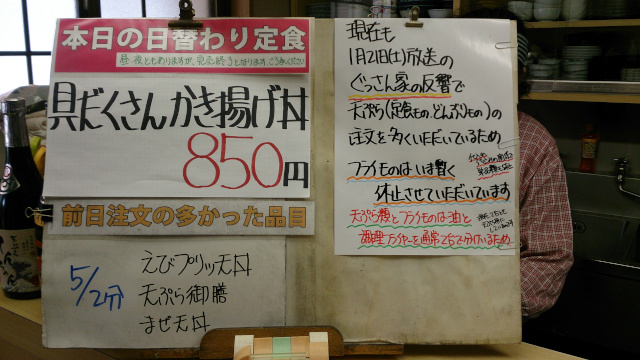 本日の日替わり定食
昼夜ともありますが、売切終了となります。ご了承ください
具だくさんかき揚げ丼
850円
前日注文の多かった品目
5/2分
えびプリッ天丼
天ぷら御膳
まぜ天丼
現在も
1月21日(土)放送の
ぐっさん家の反響で
天ぷら(定食もの、どんぶりもの)の
注文を多くいただいているため
フライものはいま暫く
休止させていただいています
天ぷら類とフライものは油と
調理フライヤーを通常で分けているため